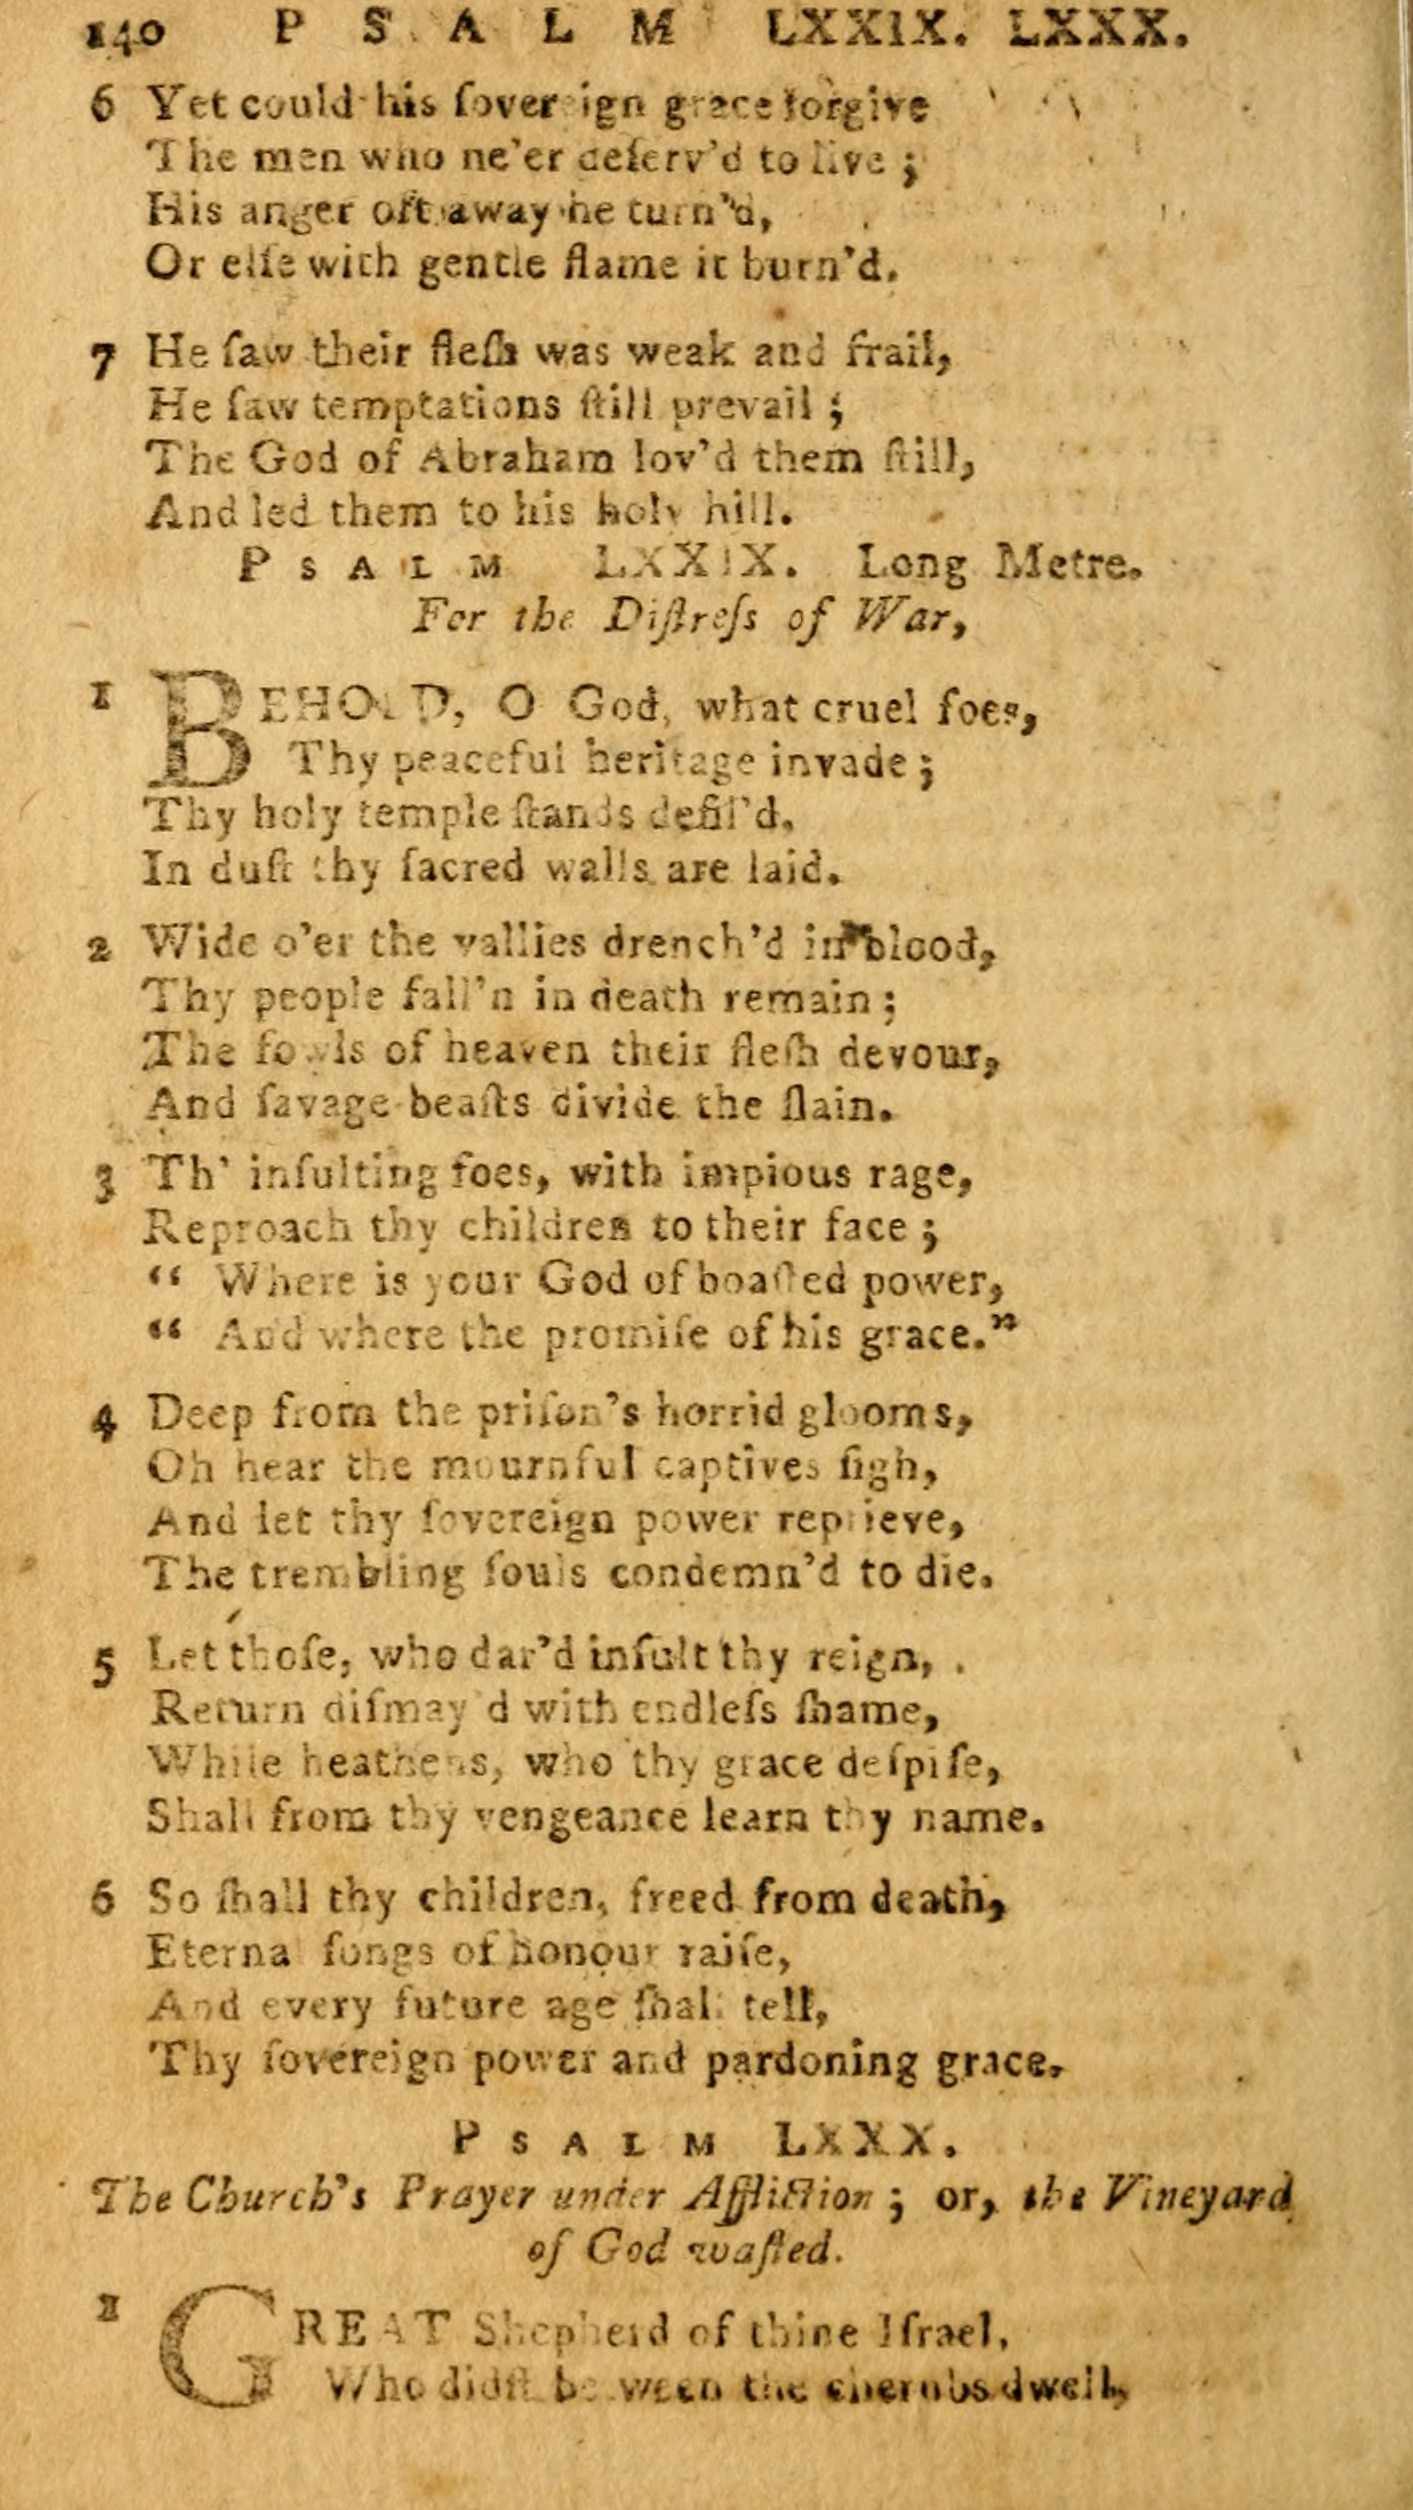 140 PSALM LXXIX. LXXX.
6 Yet could his ſovereign grace forgive
The men who ne'er deſerv'd to live ;
His anger oft away he turn'd,
Or elſe with gentle flame it burn'd.
7 He ſaw their fleſh was weak and frail,
He ſaw temptations ſtill prevail ;
The God of Abraham lov'd them ſtill,
And led them to his holy hill.
PSALM LXXIX. Long Metre.
For the Diſtreſs of War,
1 BEHOLD, O God, what cruel foes,
Thy peaceful heritage invade ;
Thy holy temple ſtands defil'd,
In duſt thy ſacred walls are laid.
2 Wide o'er the vallies drench'd in blood,
Thy people fall'n in death remain ;
The fowls of heaven their fleſh devour,
And ſavage beaſts divide the ſlain.
3 Th' inſulting foes, with impious rage,
Reproach thy children to their face ;
“ Where is your God of boaſted power,
“ And where the promiſe of his grace.”
4 Deep from the priſon's horrid glooms,
Oh hear the mournful captives ſigh,
And let thy ſovereign power reprieve,
The trembling ſouls condemn'd to die.
5 Let thoſe, who dar'd inſult thy reign,
Return diſmay'd with endleſs ſhame,
While heathens, who thy grace deſpiſe,
Shall from thy vengeance learn thy name.
6 So ſhall thy children, freed from death,
Eternal ſongs of honour raiſe,
And every future age ſhall tell,
Thy ſovereign power and pardoning grace.
PSALM LXXX.
The Church's Prayer under Affliction ; or, the Vineyard
of God waſted.
1 GREAT Shepherd of thine Iſrael,
Who didſt between the cherubs dwell,